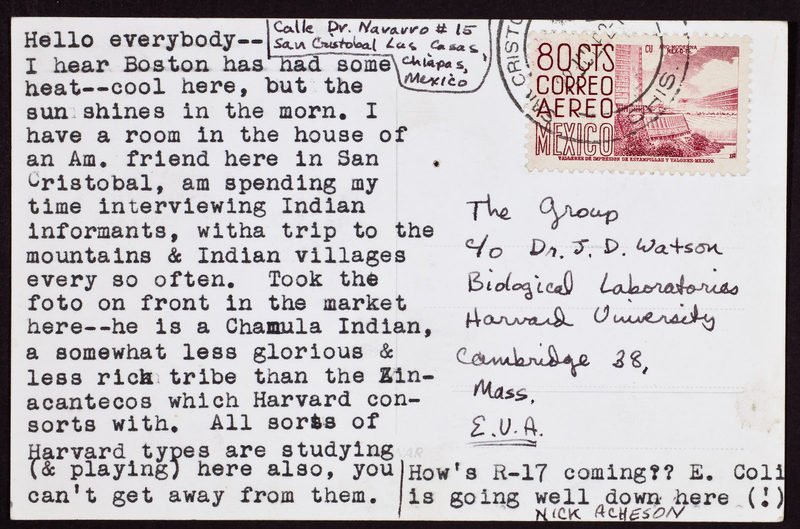 Calle Dr. Navarro # 15
San Cristobal Las Casas,
Chiapas,
Mexico
Hello everybody--
I hear Boston has had some
heat--cool here, but the
sun shines in the morn. I
have a room in the house of
an Am. friend here in San
Cristobal, am spending my
time interviewing Indian
informants, witha trip to the
mountains & Indian villages
every so often. Took the
foto on front in the market
here--he is a Chamula Indian,
a somewhat less glorious &
less rich tribe than the Zin-
acantecos which Harvard con-
sorts with. All sorts of
Harvard types are studying
(& playing) here also, you
can't get away from them.
How's R-17 coming?? E. Coli
is going well down here (!)
NICK ACHESON
80 CTS
CORREO
AEREO
MEXICO
CU
TALLERES DE IMPRESION DE ESTAMPILLAS Y VALORES-MEXICO.
The Group
c/o Dr. J. D. Watson
Biological Laboratories
Harvard University
Cambridge 38,
Mass.
E.U.A.